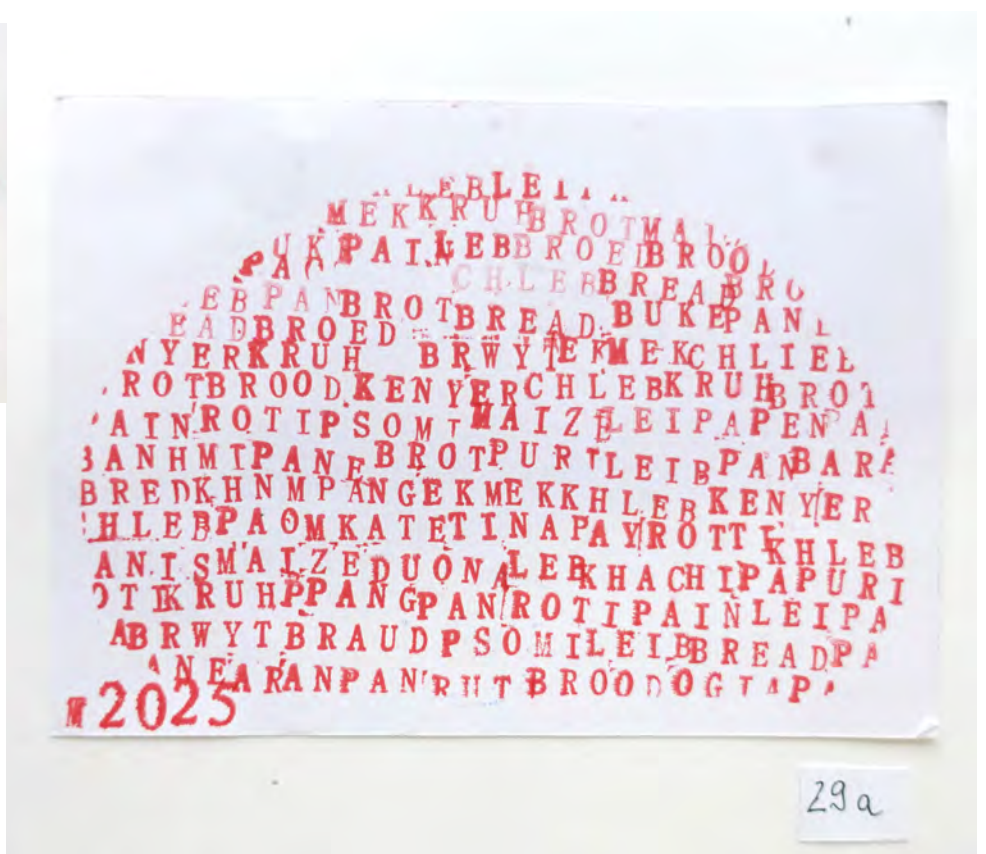 LEBLEI
MEKKRUHBROTMA
UKPAINLEBBROEDBROO
PA CHLEBBREADBRO
EBPANBROTBREADBUKEPAN
EADBROED
NYERKRUH BRWYTEKMEKCHLIEB
ROTBROODKENYERCHLEBKRUHBROT
AINROTIPSOMIMAIZELEIPAPENPA
BANHMIPANEBROTPURTLEIBPANBARA
BREDKHNMPANGEKMEKKHLEBKENYER
HLEBPAOMKATETINAPAYROTTIKHLEB
ANISMAIZEDUONALEBKHACHIPAPURI
OTIKRUHPPANGPANROTIPAINLEIPA
ABRWYTBRAUDPSOMILEIBBREADPA
ANEARANPANRUTBROOD
M 2025
29a